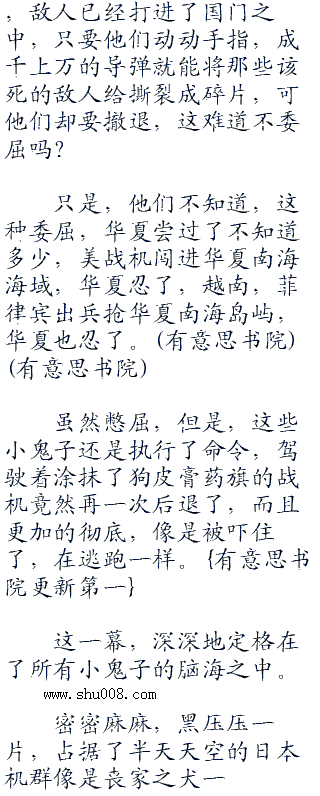 ，敌人已经打进了国门之
中，只要他们动动手指，成
千上万的导弹就能将那些该
死的敌人给撕裂成碎片，可
他们却要撤退，这难道不委
屈吗？
只是，他们不知道，这
种委屈，华夏尝过了不知道
多少，美战机闯进华夏南海
海域，华夏忍了，越南，菲
律宾出兵抢华夏南海岛屿，
华夏也忍了。(有意思书院)
(有意思书院)
虽然憋屈，但是，这些
小鬼子还是执行了命令，驾
驶着涂抹了狗皮膏药旗的战
机竟然再一次后退了，而且
更加的彻底，像是被吓住
了，在逃跑一样。{有意思书
院更新第一}
这一幕，深深地定格在
了所有小鬼子的脑海之中。
www.shu008.com
密密麻麻，黑压压一
片，占据了半天天空的日本
机群像是丧家之犬一